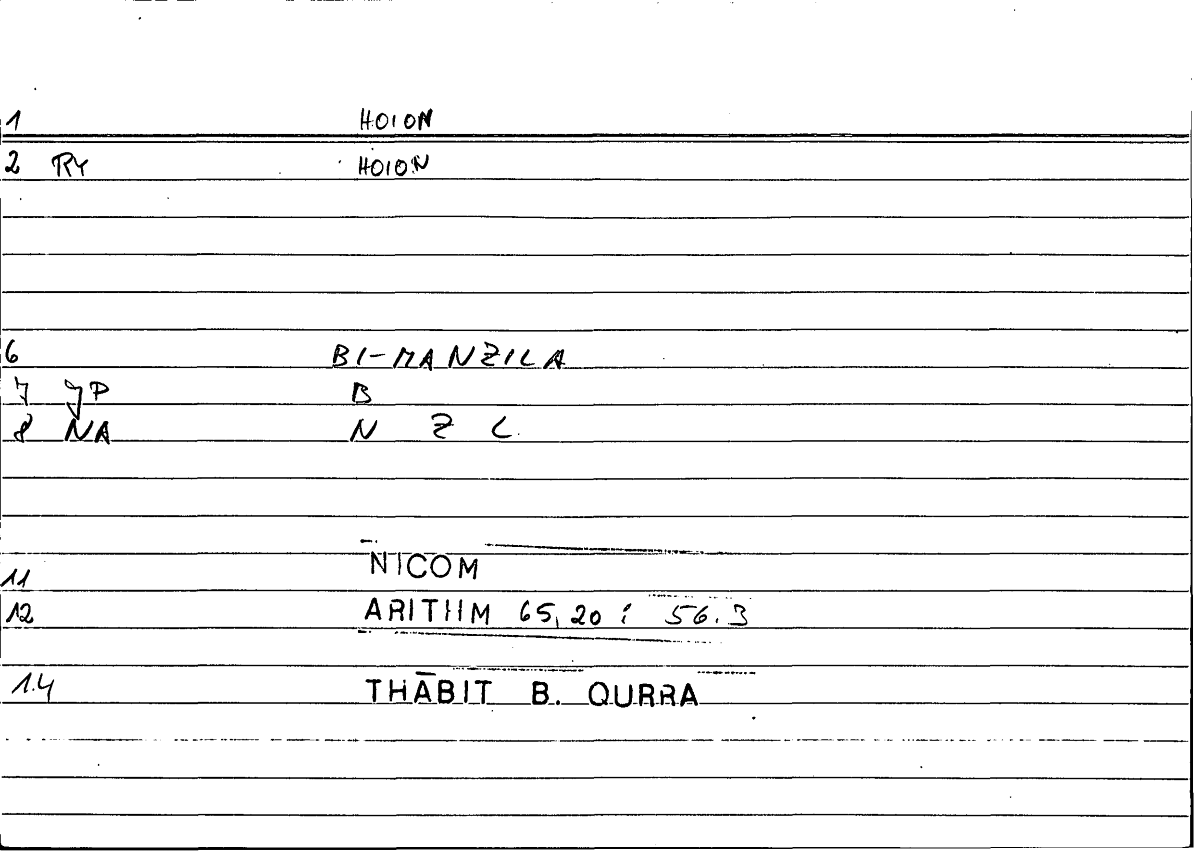 1 HOION
2 RY HOION
6 BI-MANZILA
7 JP B
8 NA N Z L
11 NICOM
12 ARITHM 65,20 ; 56.3
14 THĀBIT B. QURRA